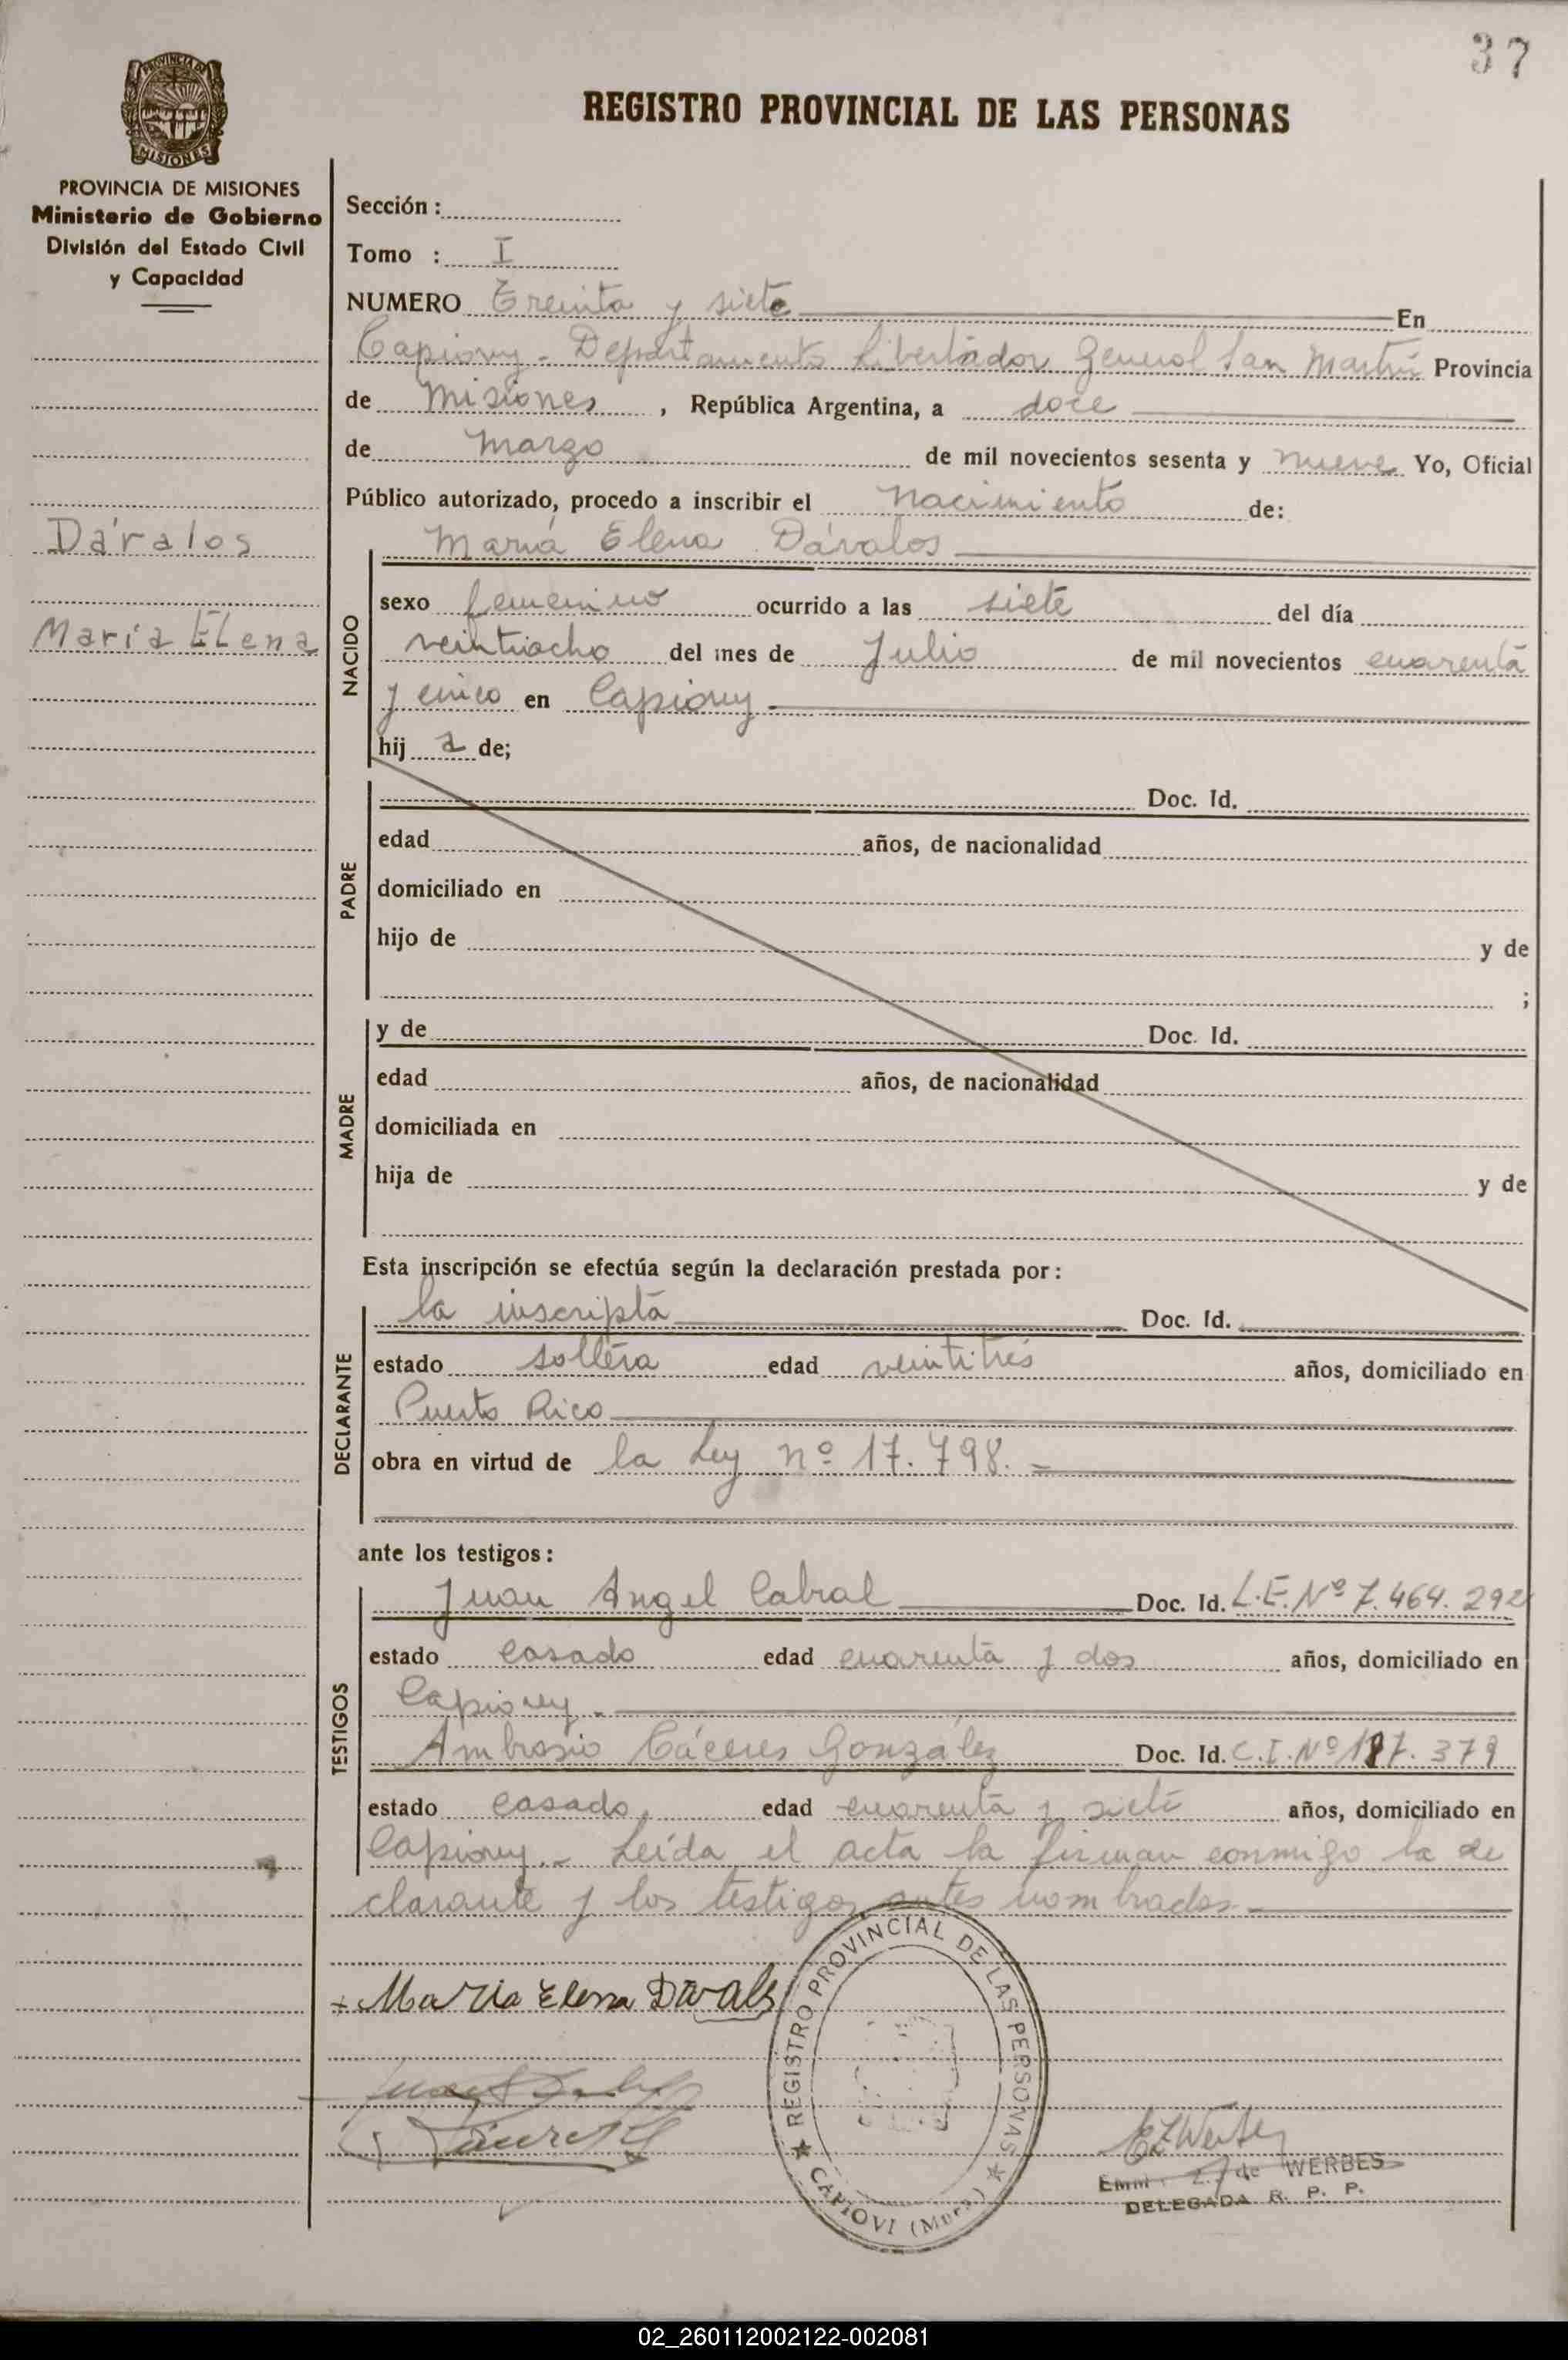 37
REGISTRO PROVINCIAL DE LAS PERSONAS
PROVINCIA DE MISIONES
MISIONES
PROVINCIA DE MISIONES
Ministerio de Gobierno
División del Estado Civil
y Capacidad
Dávalos
María Elena
Sección :
Tomo : I
NUMERO Treinta y siete En
Capiovy - Departamento Libertador General San Martín Provincia
de Misiones , República Argentina, a doce
de Marzo de mil novecientos sesenta y nueve Yo, Oficial
Público autorizado, procedo a inscribir el Nacimiento de:
NACIDO
María Elena Dávalos
sexo femenino ocurrido a las siete del día
veintiocho del mes de Julio de mil novecientos cuarenta
y cinco en Capiovy
hij a de;
PADRE
Doc. Id.
edad años, de nacionalidad
domiciliado en
hijo de y de
;
MADRE
y de Doc. Id.
edad años, de nacionalidad
domiciliada en
hija de y de
Esta inscripción se efectúa según la declaración prestada por :
DECLARANTE
la inscripta Doc. Id.
estado soltera edad veintitrés años, domiciliado en
Puerto Rico
obra en virtud de la Ley nº 17.798. -
ante los testigos :
TESTIGOS
Juan Angel Cabral Doc. Id. L.E. Nº 7.464.292
estado casado edad cuarenta y dos años, domiciliado en
Capiovy. -
Ambrosio Cáceres González Doc. Id. C.I. Nº 187.379
estado casado, edad cuarenta y siete años, domiciliado en
Capiovy. - Leída el acta la firman conmigo la de
clarante y los testigos antes nombrados -
María Elena Davalos
REGISTRO PROVINCIAL DE LAS PERSONAS
CAPIOVI (Mnes)
de WERBES
DELEGADA R. P. P.
02_260112002122-002081